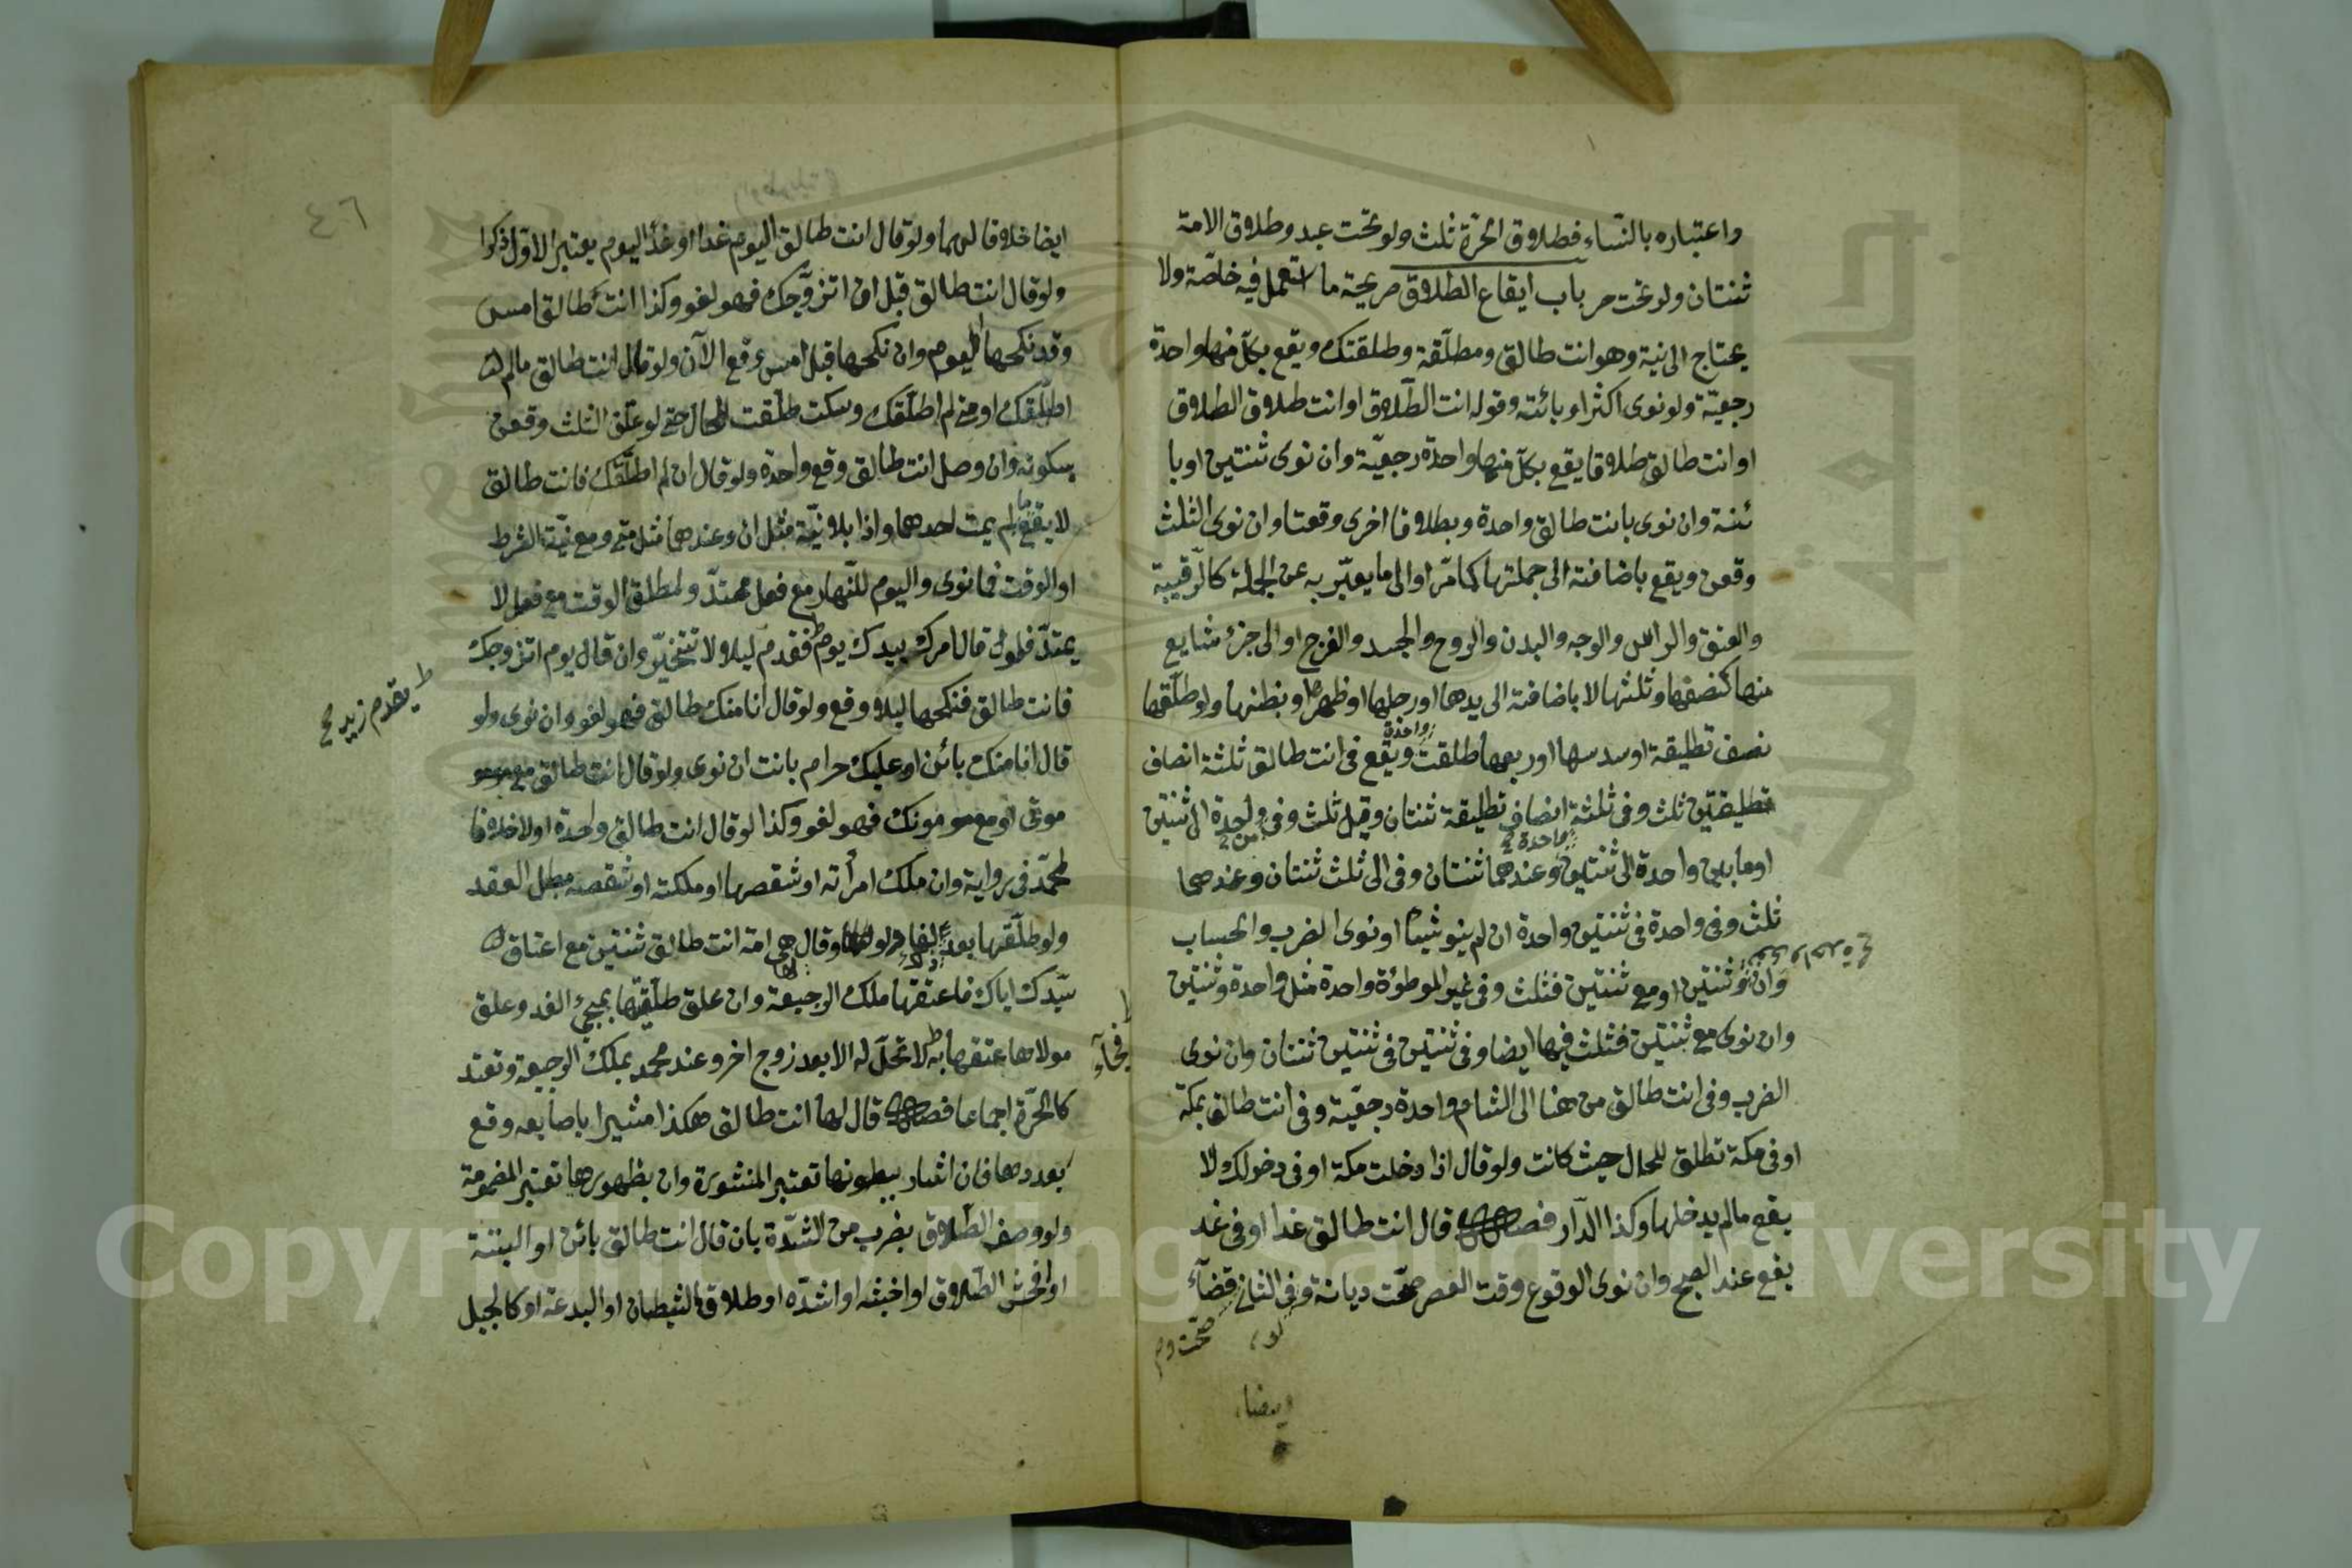 واعتباره بالنساء فطلاق الحرة ثلث ولو تحت عبد وطلاق الامة
ثنتان ولو تحت حر باب ايقاع الطلاق صريحة ما استعمل فيه خاصّة ولا
يحتاج الى نية وهو انت طالق ومطلّقة وطلقتك ويقع بكلّ منها واحدة
رجعيّة ولو نوى اكثر او بائنة وقوله انت الطّلاق او انت طلاق الطلاق
او انت طالق طلاقا يقع بكلّ منها واحدة رجعيّة وان نوى ثنتين او با
ئنة وان نوى بانت طالق واحدة وبطلاقا اخرى وقعتا وان نوى الثلث
وقعن ويقع باضافته الى جملتها كما مرّ او الى ما يعبّر به عن الجملة كالرّقبة
والعنق والراس والوجه والبدن والروح والجسد والفرج او الى جزء شايع
منها كنصفها وثلثها لا باضافته الى يدها او رجلها او ظهرها او بطنها ولو طلّقها
نصف تطليقة او سدسها او ربعها طلقت واحدة ويقع فى انت طالق ثلثة انصاف
تطليقتين ثلث وفى ثلثة انصاف تطليقة ثنتان وقيل ثلث وفى من واحدة الى ثنتين
او ما بين واحدة الى ثنتين واحدة وعندهما ثنتان وفى الى ثلث ثنتان وعندهما
ثلث وفى واحدة فى ثنتين واحدة ان لم ينو شيئا او نوى الضرب والحساب
وان نوى ثنتين او مع ثنتين فثلث وفى غير الموطؤة واحدة مثل واحدة وثنتين
وان نوى مع ثنتين فثلث فيها ايضا وفى ثنتين فى ثنتين ثنتان وان نوى
الضرب وفى انت طالق من هنا الى الشام واحدة رجعيّة وفى انت طالق بمكة
او فى مكة تطلق للحال حيث كانت ولو قال اذا دخلت مكة او فى دخولك لا
يقع مالم يدخلها وكذا الدّار فصل قال انت طالق غدا او فى غد
يقع عند الصبح وان نوى الوقوع وقت العصر صحّت ديانة وفى الثانى قضآء
ايضا
٤٦
ايضا خلافا لهما ولو قال انت طالق اليوم غدا او غدا اليوم يعتبر الاوّل ذكرا
ولو قال انت طالق قبل ان اتزوّجك فهو لغو وكذا انت طالق امس
وقد نكحها اليوم وان نكحها قبل امس وقع الآن ولو قال انت طالق مالم
اطلّقك او متى لم اطلّقك وسكت طلّقت للحال حتى لو علّق الثلث وقعن
بسكوته وان وصل انت طالق وقع واحدة ولو قال ان لم اطلّقك فانت طالق
لا يقع ما لم يمت احدهما واذا بلا نيّة مثل ان وعندهما مثل متى ومع نيّة الشرط
او الوقت فما نوى واليوم للنّهار مع فعل ممتدّ ولمطلق الوقت مع فعل لا
يمتدّ فلو قال امرك بيدك يوم فقدم ليلا لا تتخيّر وان قال يوم اتزوجك
يقدم زيد صح
فانت طالق فنكحها ليلا وقع ولو قال انا منك طالق فهو لغو وان نوى ولو
قال انا منك بائن او عليك حرام بانت ان نوى ولو قال انت طالق مع
موتى او مع موتك فهو لغو وكذا لو قال انت طالق واحدة او لا خلافا
لمحمّد فى رواية وان ملك امرأته او شقصها او ملكته او شقصه بطل العقد
ولو طلّقها بعد ولو قال لها وهى امة انت طالق ثنتين مع اعتاق
سيّدك اياك فاعتقها ملك الرجعة وان علق طلّقتها بمجئ الغد وعلق
مولاها عتقها به لا تحلّ له الا بعد زوج اخر وعند محمد يملك الرجعة وتعتد
فجآء
كالحرّة اجماعا فصل قال لها انت طالق هكذا مشيرا باصابعه وقع
بعددها فان اشار ببطونها تعتبر المنشورة وان بظهورها تعتبر المضمومة
ولو وصف الطّلاق بضرب من الشدّة بان قال انت طالق بائن او البتة
او افحش الطّلاق او اخبثه او اشدّه او طلاق الشيطان او البدعة او كالجبل
Copyright © King Saud University